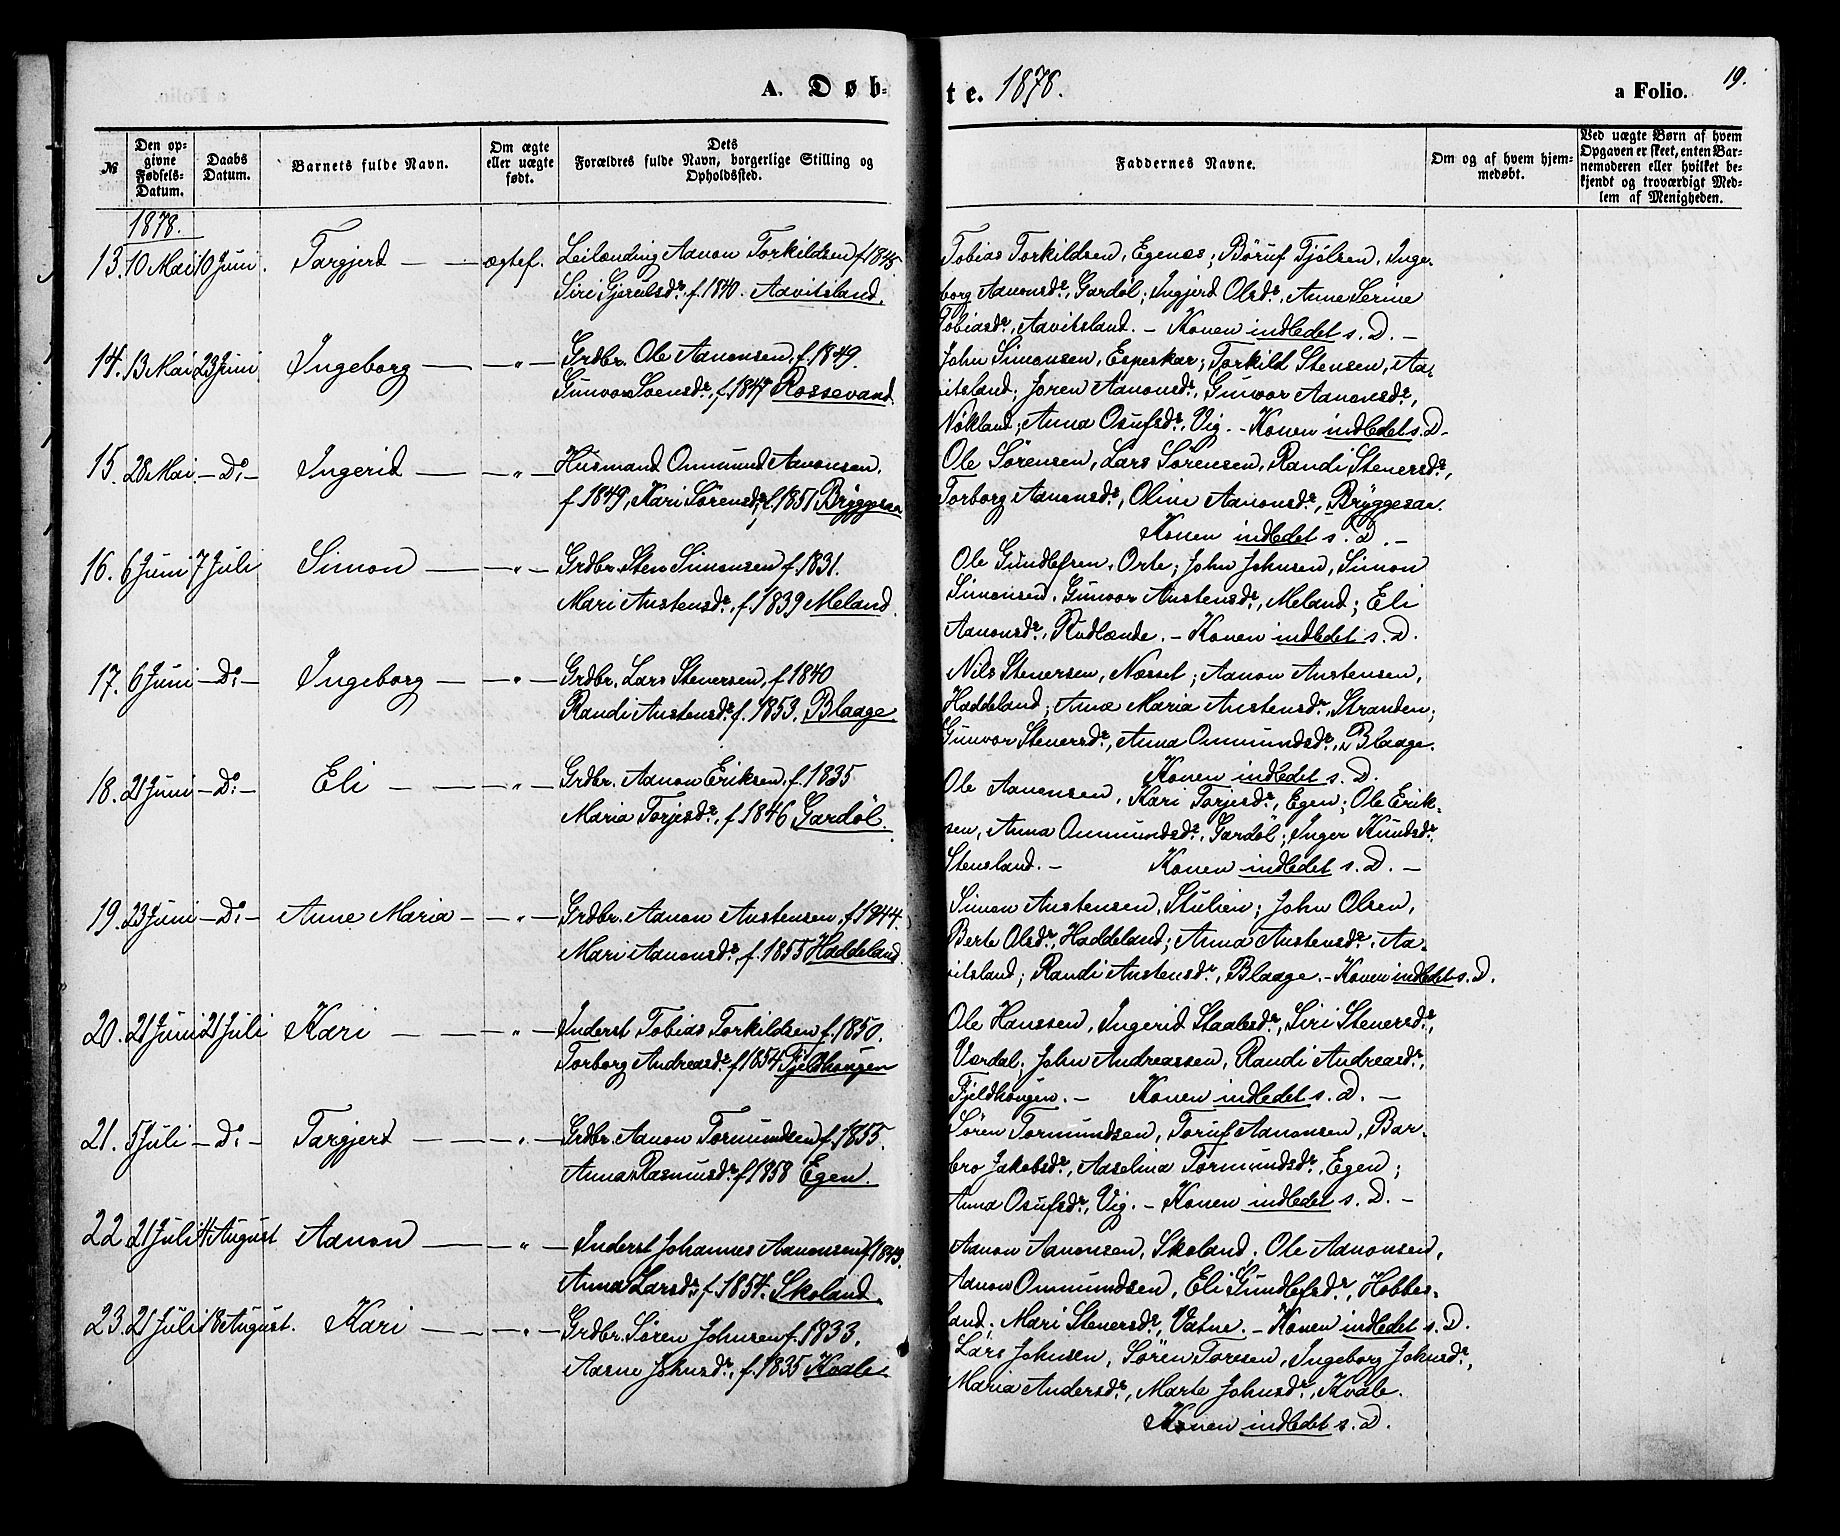 A. Døb-
te. 1878.
a Folio. 19.
№
Den op-
givne
Fødsels-
Datum.
Daabs
Datum.
Barnets fulde Navn.
Om ægte
eller uægte
født.
Dets
Forældres fulde Navn, borgerlige Stilling og
Opholdssted.
Faddernes Navne.
Om og af hvem hjem-
medøbt.
Ved uægte Børn af hvem
Opgaven er skeet, enten Bar-
nemoderen eller hvilket be-
kjendt og troværdigt Med-
lem af Menigheden.
1878.
13. 10 Mai 10 Juni. Targjerd — — ægtef. Leilending Aanon Torkildsen f. 1845
Siri Gjerulsdr. f. 1840. Aavitsland.
Tobias Torkildsen, Egenes; Böruf Tjölsen, Inge-
borg Aanonsdr., Gardöl; Ingjerd Olsdr., Anne Serine
Tobiasdr., Aavitsland. – Konen indledet s. D. –
14. 13 Mai 23 Juni Ingeborg — — „ — Grdbr. Ole Aanonsen, f. 1849.
Gunvor Soensdr., f. 1847 Rossevand.
John Simonsen, Espeskar; Torkild Stensen, Aa-
vitsland; Joren Aanonsdr., Gunvor Aanonsdr.,
Nökland; Anna Osufsdr., Vig. – Konen indledet s. D –
15. 28 Mai – Do. – Ingerid — — „ — Husmand Onmund Aanonsen,
f. 1849, Kari Sörensdr., f. 1851 Bryggesaa
Ole Sörensen, Lars Sörensen, Randi Stenersdr.,
Torborg Aanonsdr., Oline Aanonsdr., Bryggesaa.
Konen indledet s. D. –
16. 6 Juni 7 Juli Simon — — „ — Grdbr. Sten Simonsen f. 1831.
Mari Austensdr., f. 1839 Meland.
Ole Gundlefsen, Orte; John Johnsen, Simon
Simonsen, Gunvor Austensdr., Meland; Eli
Aanonsdr., Rudlende. – Konen indledet s. D.
17. 6 Juni – Do. – Ingeborg — — „ — Grdbr. Lars Stenersen, f. 1840
Randi Austensdr. f. 1853. Blaage.
Nils Stenersen, Næset; Aanon Austensen,
Haddeland; Anne Maria Austensdr., Stranden;
Gunvor Stenersdr., Anna Onmundsdr., Blaage.
Konen indledet s. D.
18. 21 Juni – Do. – Eli — — „ — Grdbr. Aanon Eriksen, f. 1835
Maria Torjesdr., f. 1846 Gardöl.
Ole Aanonsen, Kari Torjesdr., Egen; Ole Erik-
sen, Anna Onmundsdr., Gardöl; Inger Knudsdr.
Stensland. – Konen indledet s. D. –
19. 23 Juni – Do. – Anne Maria — — „ — Grdbr. Aanon Austensen, f. 1844.
Mari Aanonsdr., f. 1855 Haddeland.
Simon Austensen, Stulien; John Olsen,
Berte Olsdr., Haddeland; Anna Austensdr., Aa-
vitsland; Randi Austensdr., Blaage. – Konen indledet s. D.
20. 21 Juni 21 Juli Kari — — „ — Inderst Tobias Torkildsen f. 1850.
Torborg Andreasdr. f. 1854 Fjeldhougen
Ole Hanssen, Ingerid Staalesdr., Siri Stenersdr.,
Verdal; John Andreassen, Randi Andreasdr.,
Fjeldhougen. – Konen indledet s. D. –
21. 5 Juli – Do. – Targjerd — — „ — Grdbr. Aanon Tormundsen f. 1855.
Anna Rasmusdr. f. 1858 Egen.
Sören Tormundsen, Toruf Aanonsen, Bar-
bro Jakobsdr., Aaselina Tormundsdr., Egen;
Anna Osufsdr., Vig. – Konen indledet s. D. –
22 21 Juli 4 August Aanon — — „ — Inderst Johannes Aanonsen f. 1849.
Anna Larsdr. f. 1854. Skoland.
Aanon Aanonsen, Skoland. Ole Aanonsen,
Aanon Onmundsen, Eli Gundlefsdr., Hobbes-
land. Mari Stenersdr., Vatne. – Konen indledet s. D.
23. 21 Juli 18 August. Kari — — „ — Grdbr. Sören Johnsen f. 1833.
Aasne Johnsdr., f. 1835 Kvale
Lars Johnsen, Sören Toresen, Ingeborg Johnsdr.,
Maria Andersdr., Marte Johnsdr., Kvale.
Konen indledet s. D.